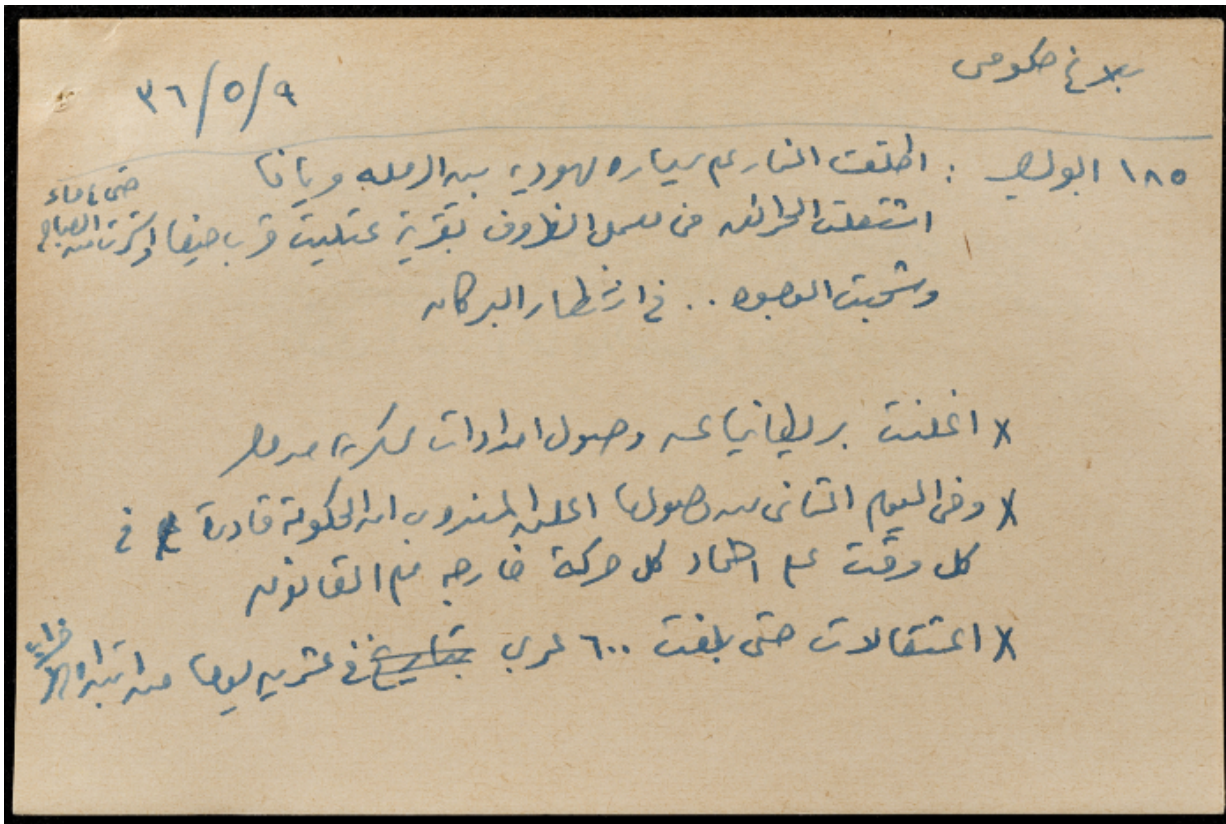 بلاغ حكومى
٣٦/٥/٩
١٨٥ البوليس : اطلقت النار على سياره يهوديه بين الرمله ويافا
اشتعلت الحرائق فى معمل الظروف بقرية عتليت قرب حيفا واستمرت من الصباح حتى ٤ مساء
وشحبت الوجوه .. في انتظار البركان
x اعلنت بريطانيا عن وصول امدادات عسكريه من مصر
x وفى اليوم الثانى من وصولها اعلن المندوب ان الحكومة قادرة في
كل وقت على اخماد كل حركة خارجه على القانون
x اعتقالات حتى بلغت ٦٠٠ عربي في عشرين يوما من ابتداء الاضراب